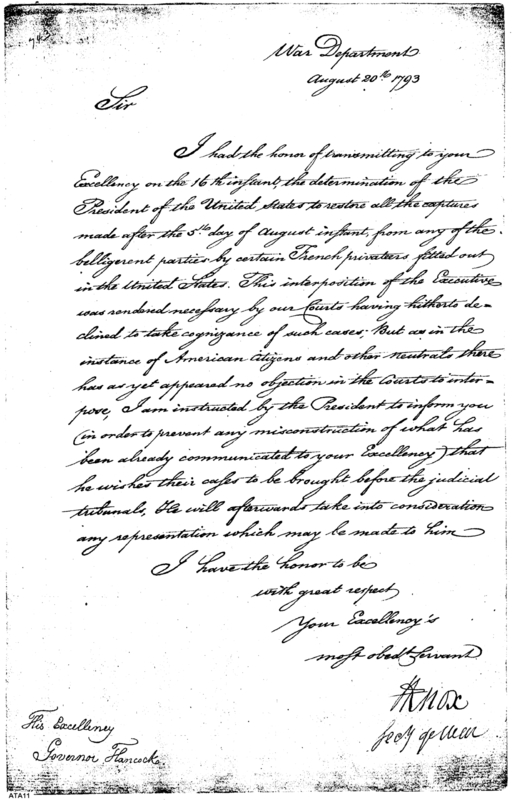 War Department
August 20th 1793
Sir
I had the honor of transmitting to your
Excellency on the 16th instant, the determination of the
President of the United States to restore all the captures
made after the 5th day of August instant, from any of the
belligerent parties by certain French privateers fitted out
in the United States. This interposition of the Executive
was rendered necessary by our Courts having hitherto de-
clined to take cognizance of such cases; But as in the
instance of American Citizens and other Neutrals there
has as yet appeared no objection in the Courts to inter-
pose, I am instructed by the President to inform you
(in order to prevent any misconstruction of what has
been already communicated to your Excellency) that
he wishes their cases to be brought before the judicial
tribunals, He will afterwards take into consideration
any representation which may be made to him
I have the honor to be
with great respect
Your Excellency's
most obedt. Servant
HKnox
Secy of War
His Excellency
Governor Hancock
ATA11